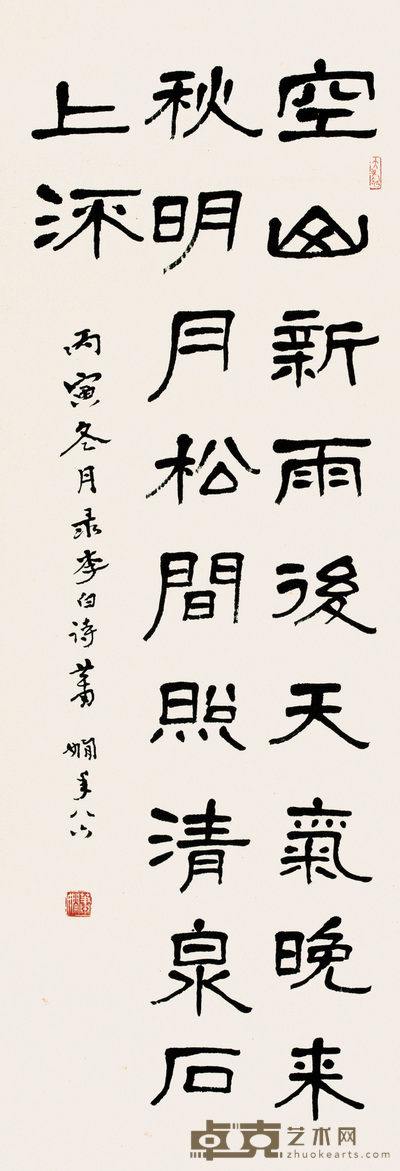 空山新雨後天氣晚来
秋明月松間照清泉石
上流
丙寅冬月录李白诗萧嫻年八六
卓克艺术网
zhuokearts.com